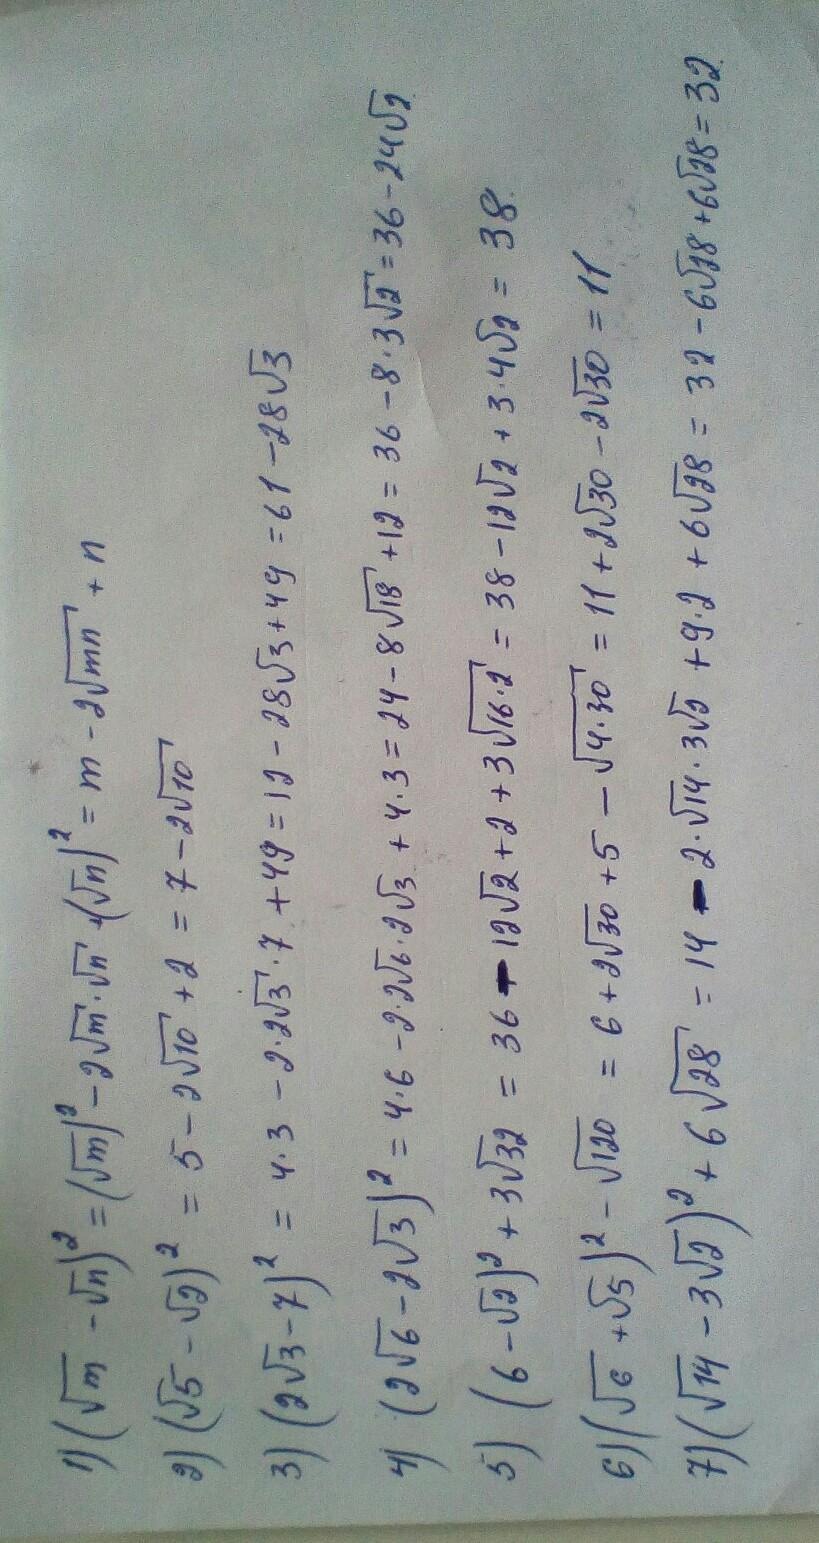 1) (√m - √n)² = (√m)² - 2√m·√n + (√n)² = m - 2√mn + n
2) (√5 - √2)² = 5 - 2√10 + 2 = 7 - 2√10
3) (2√3 - 7)² = 4·3 - 2·2√3·7 + 49 = 12 - 28√3 + 49 = 61 - 28√3
4) (2√6 - 2√3)² = 4·6 - 2·2√6·2√3 + 4·3 = 24 - 8√18 + 12 = 36 - 8·3√2 = 36 - 24√2
5) (6 - √2)² + 3√32 = 36 - 12√2 + 2 + 3√16·2 = 38 - 12√2 + 3·4√2 = 38.
6) (√6 + √5)² - √120 = 6 + 2√30 + 5 - √4·30 = 11 + 2√30 - 2√30 = 11
7) (√14 - 3√2)² + 6√28 = 14 - 2·√14·3√2 + 9·2 + 6√28 = 32 - 6√28 + 6√28 = 32